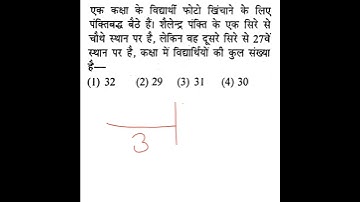 एक कक्षा के विद्यार्थी फोटो खिंचाने के लिए
पंक्तिबद्ध बैठे हैं। शैलेन्द्र पंक्ति के एक सिरे से
चौथे स्थान पर है, लेकिन वह दूसरे सिरे से 27वें
स्थान पर है, कक्षा में विद्यार्थियों की कुल संख्या
है—
(1) 32 (2) 29 (3) 31 (4) 30
3